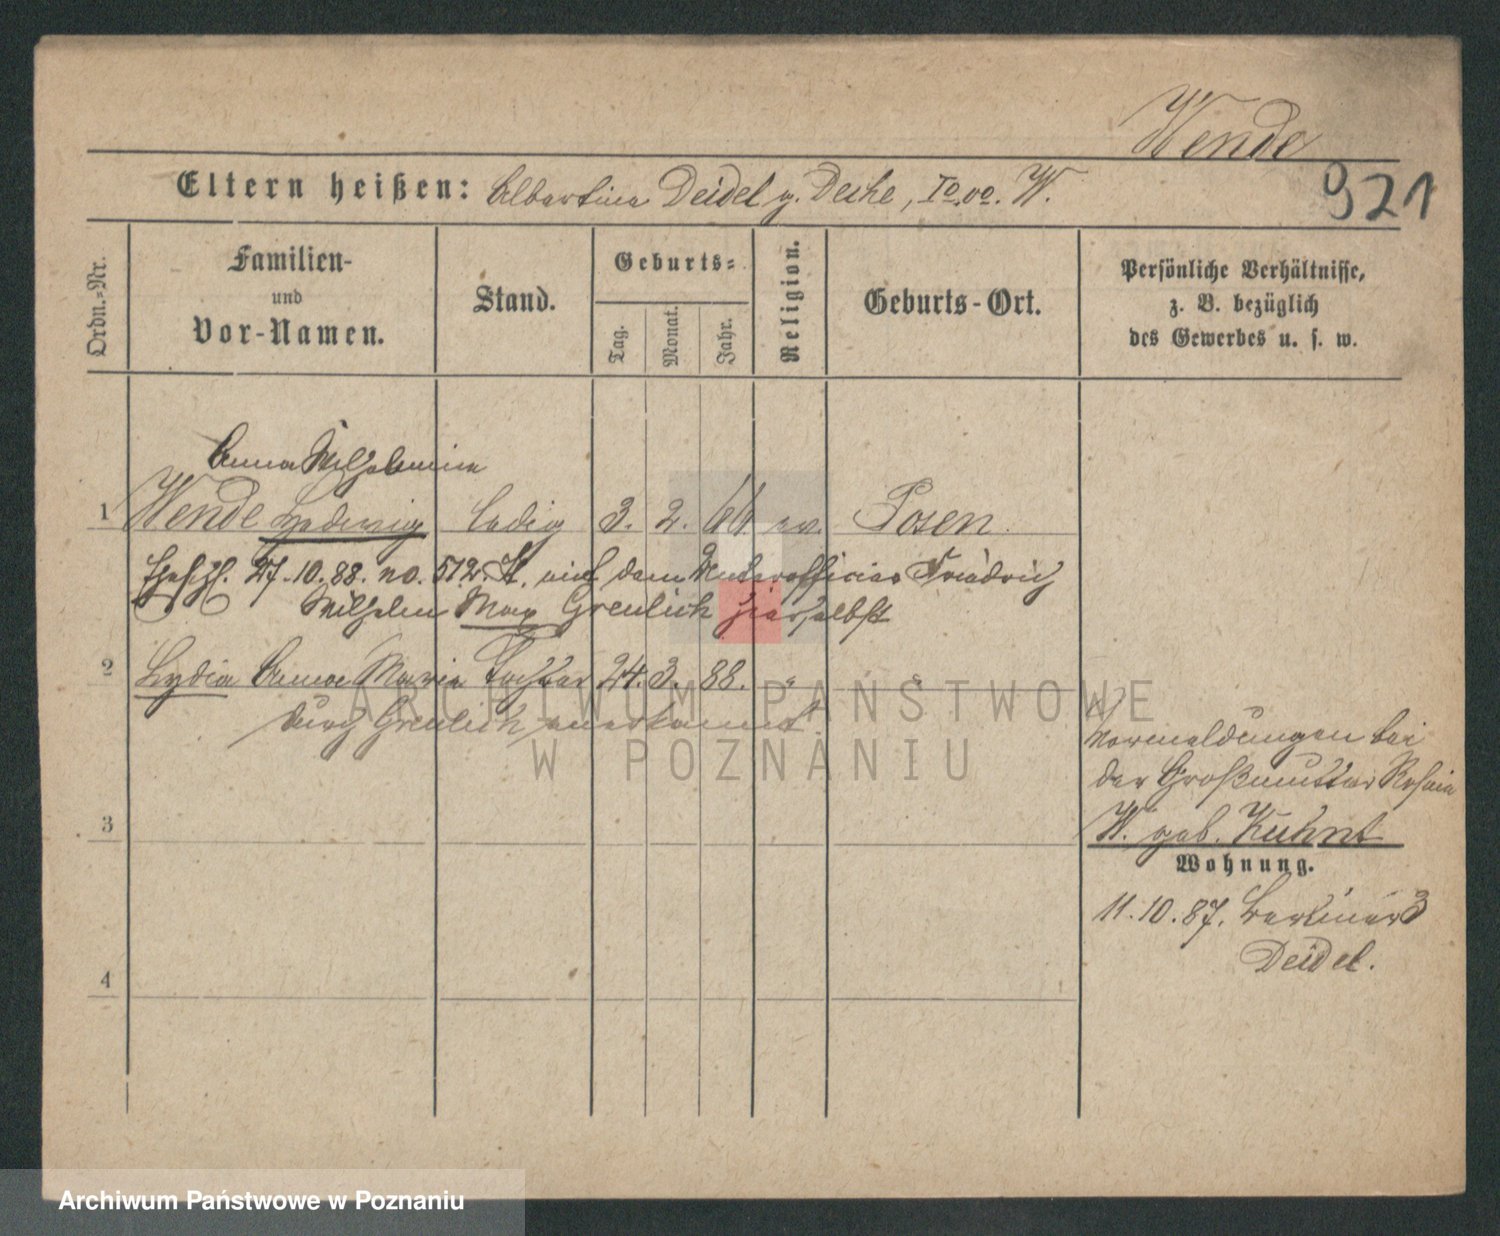 Wende
Eltern heißen: Albertine Deidel g. Deske, Io. vo. W.
921
Ordn.-Nr.
Familien-
und
Vor-Namen.
Stand.
Geburts-
Tag.
Monat.
Jahr.
Religion.
Geburts-Ort.
Persönliche Verhältnisse,
z. B. bezüglich
des Gewerbes u. s. w.
Anna Wilhelmine
1 Wende Hedwig ledig 3. 2. 66. ev. Posen.
27.10.88. no. 512. St. mit dem Unterofficier Friedrich
Wilhelm Max Greulich hierselbst
2 Lydia Anna Marie Tochter 24. 3. 88. " "
durch Greulich anerkannt.
ARCHIWUM PAŃSTWOWE
W POZNANIU
Vormeldungen bei
der Großmutter
W. geb. Kuhnt
3
Wohnung.
11.10.87. Berliner 3
Deidel.
4
Archiwum Państwowe w Poznaniu